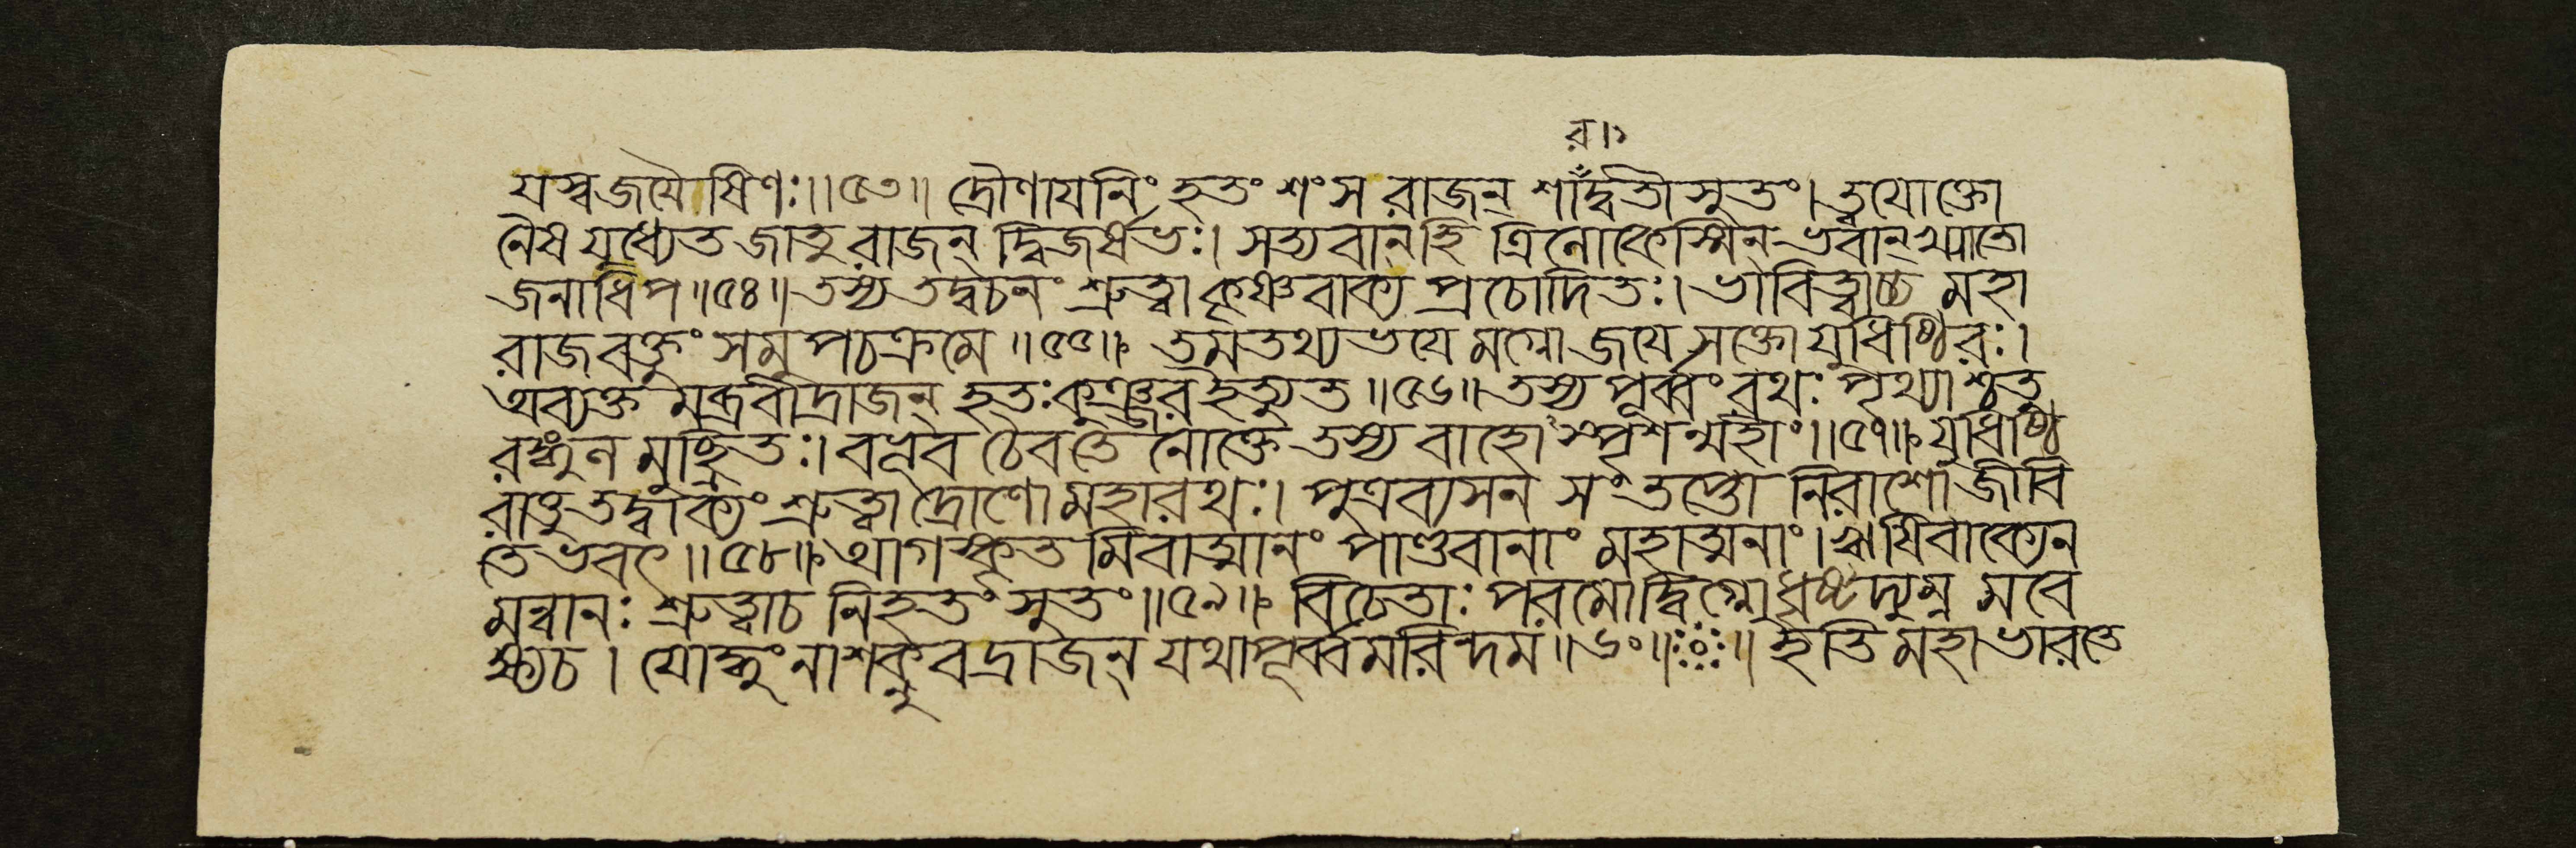 র ৷১
যস্বজয়ৈষিণঃ৷৷৫৩৷৷ দ্রৌণাযনিং হতং শংস রাজন্ শাৰ্দ্বতীসুতং৷ ত্বযোক্তো
নৈষ যুধ্যেত জাতু রাজন্ দ্বিজর্ষভঃ৷ সত্যবান্‌হি ত্রিলোকেস্মিন্ ভবান্ খ্যাতো
জনাধিপ৷৷৫৪৷৷ তস্য তদ্বচনং শ্রুত্বা কৃষ্ণবাক্য প্রচোদিতঃ৷ ভাবিত্বাচ্চ মহা
রাজ বক্তুং সমুপচক্রমে৷৷৫৫৷৷ তমতথ্যভযে মগ্নো জযে সক্তো যুধিষ্ঠিরঃ৷
অব্যক্ত মব্রবীদ্রাজন্ হতঃকুঞ্জর ইত্যুত৷৷৫৬৷৷ তস্য পূর্ব্বং রথঃ পৃথ্ব্যাশ্চতু
রঙ্গুল মুচ্ছ্রিতঃ৷ বভূব চৈবতেনোক্তে তস্য বাহো স্পৃশন্মহীং৷৷৫৭৷৷ যুধিষ্ঠি
রাত্তু তদ্বাক্যং শ্রুত্বা দ্রোণো মহারথঃ৷ পুত্রব্যসন সংতপ্তো নিরাশো জীবি
তেভবৎ৷৷৫৮৷৷ আগস্কৃত মিবাত্মানং পাণ্ডবানাং মহাত্মনাং৷ ঋষিবাক্যেন
মন্বানঃ শ্রুত্বাচ নিহতং সুতং৷৷৫৯৷৷ বিচেতাঃ পরমোদ্বিগ্নো ধৃষ্টদ্যুম্ন মবে
ক্ষ্যচ৷ যোদ্ধুং নাশক্নুবদ্রাজন্ যথাপূর্ব্বমরিন্দম৷৷৬০৷৷ ৷৷ ইতি মহাভারতে